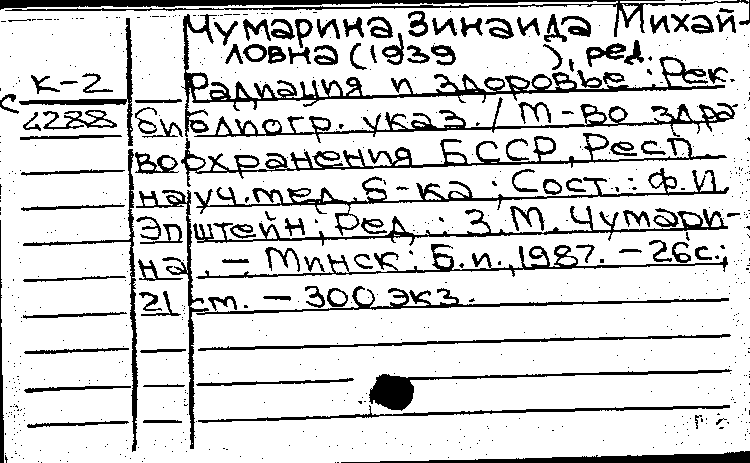 Чумарина, Зинаида Михай-
ловна (1939 ), ред.
К-2
Радиация и здоровье : Рек.
4288
библиогр. указ. / М-во здра-
воохранения БССР, Респ.
науч. мед. б-ка ; Сост.: Ф.И.
Эпштейн; Ред.: З.М. Чумари-
на. — Минск : Б.и., 1987. — 26 с.;
21 см. — 300 экз.